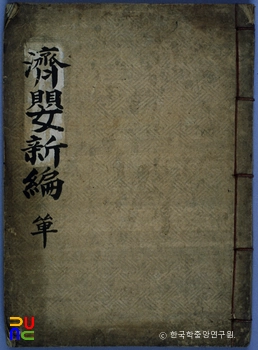 濟嬰新編
單
PUAC
ⓒ 한국학중앙연구원